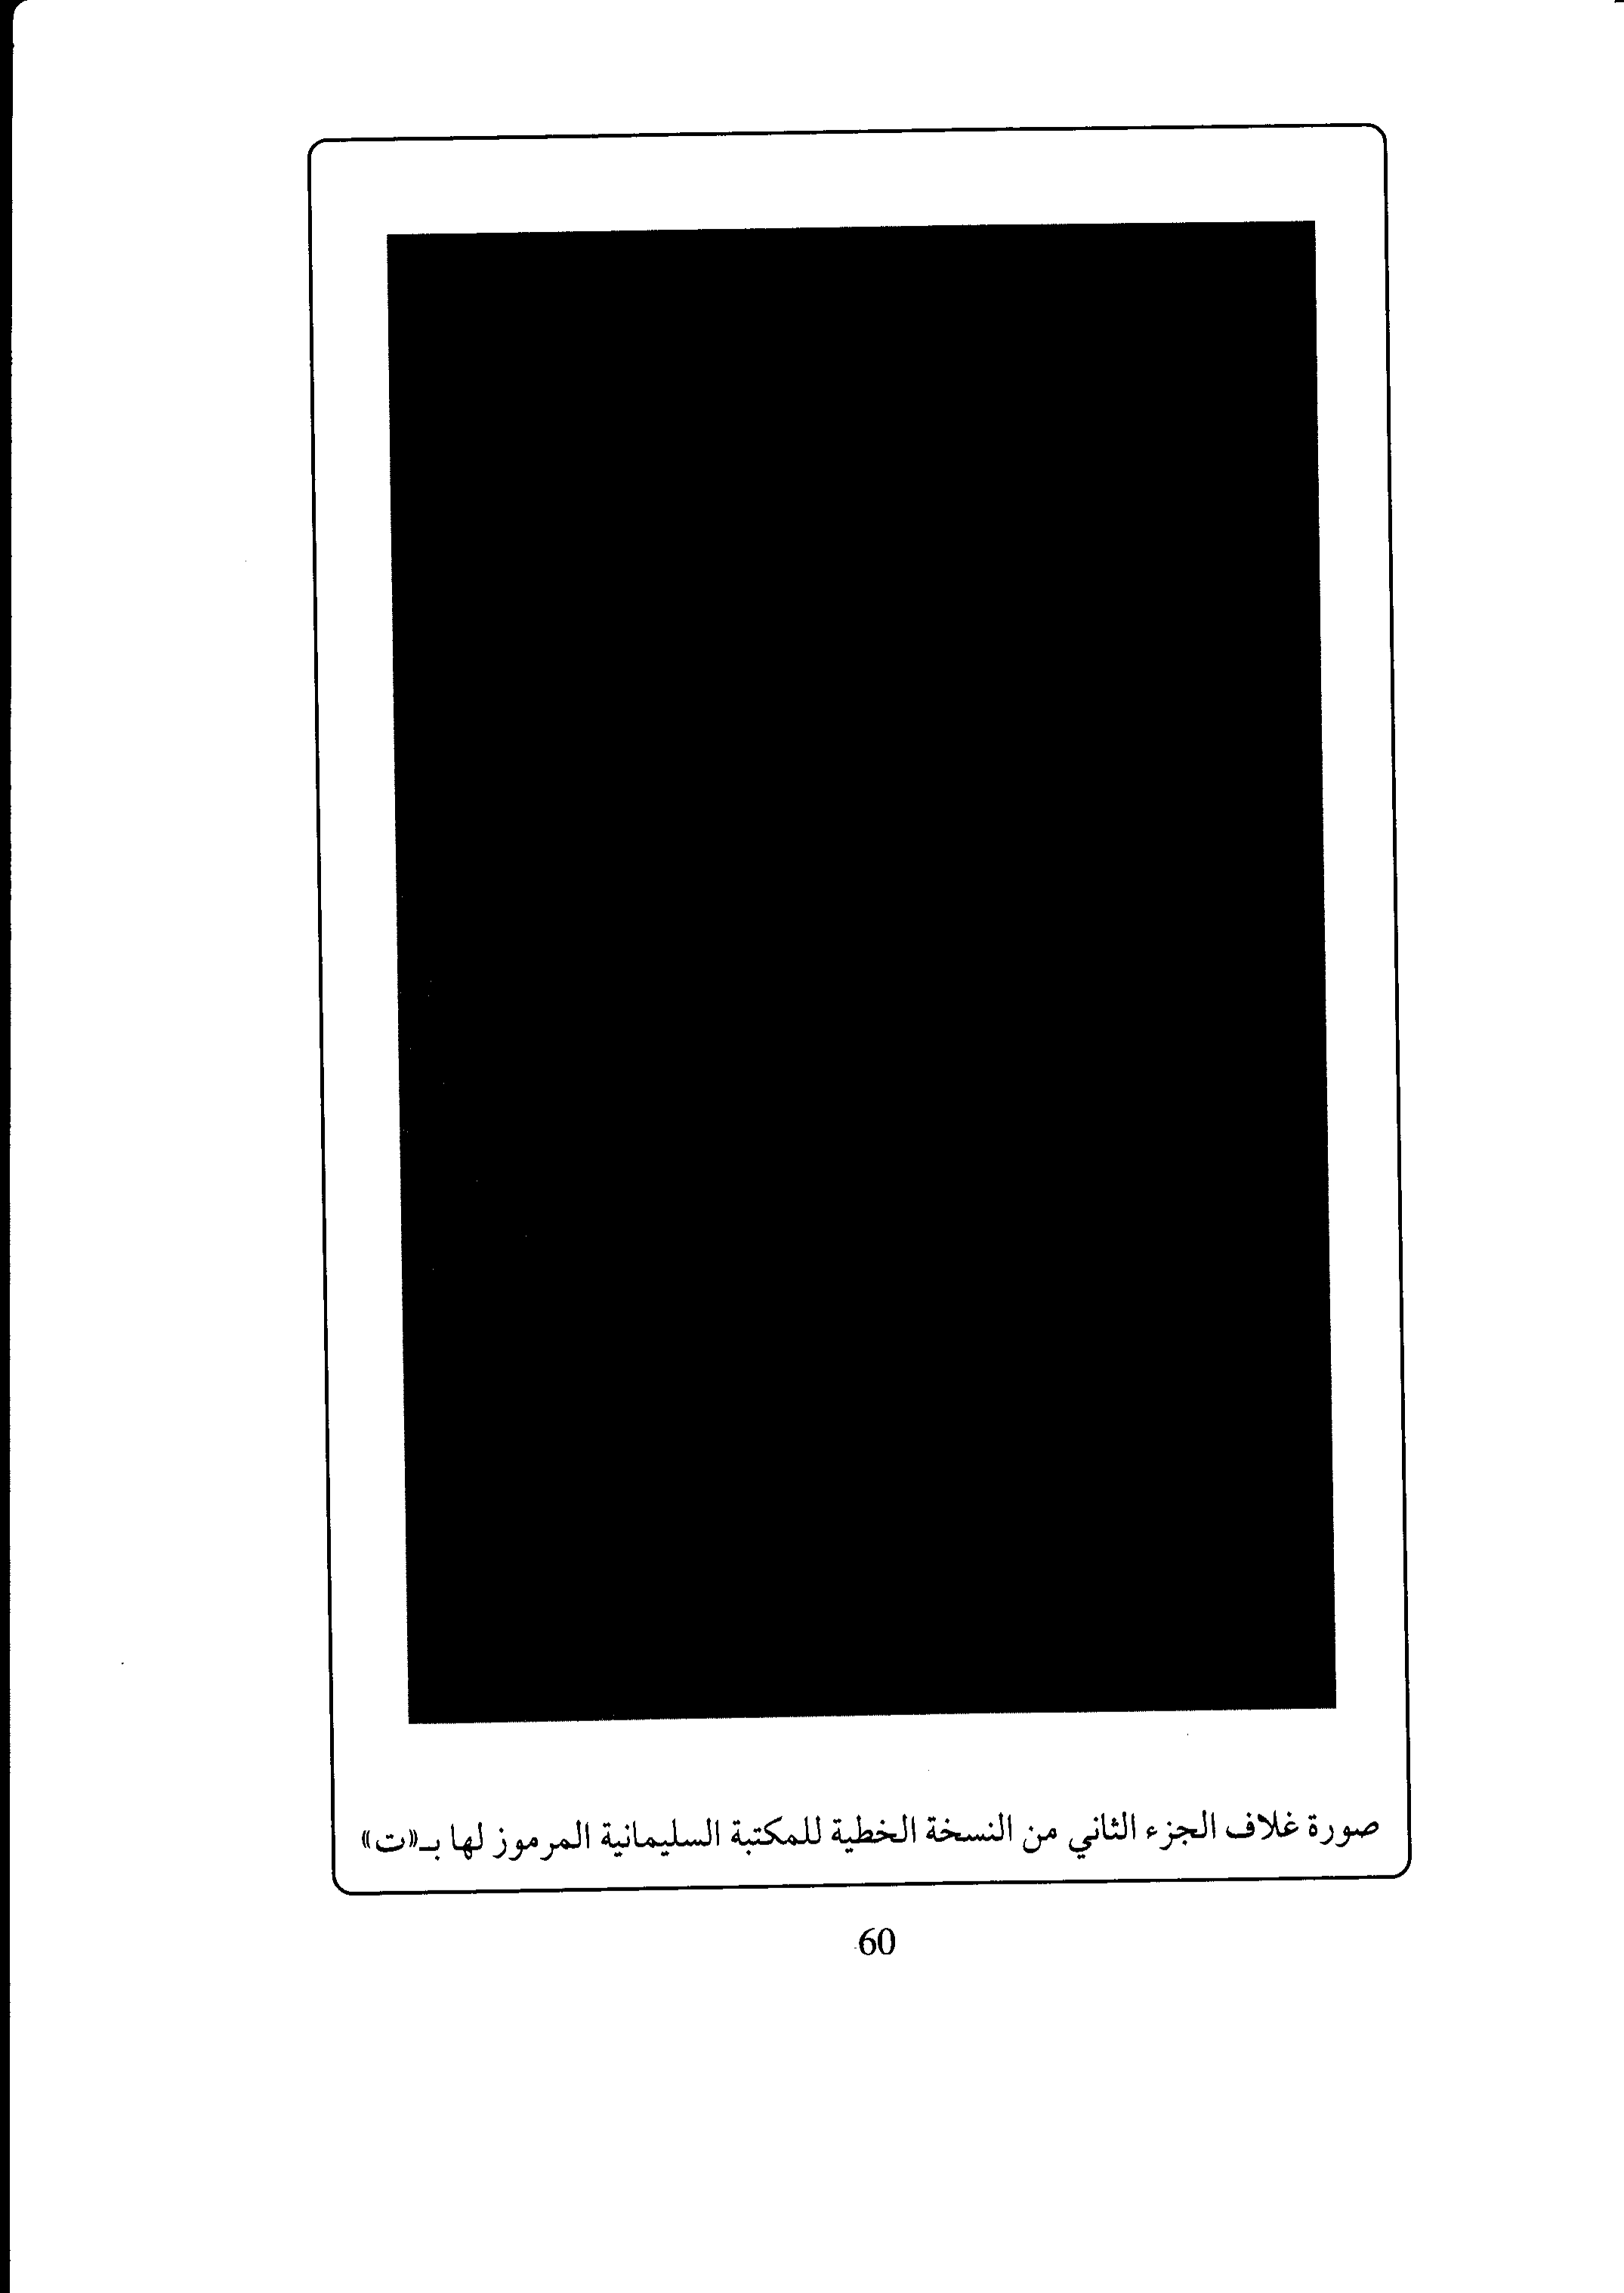 صورة غلاف الجزء الثاني من النسخة الخطية للمكتبة السليمانية المرموز لها بـ«ت»
60